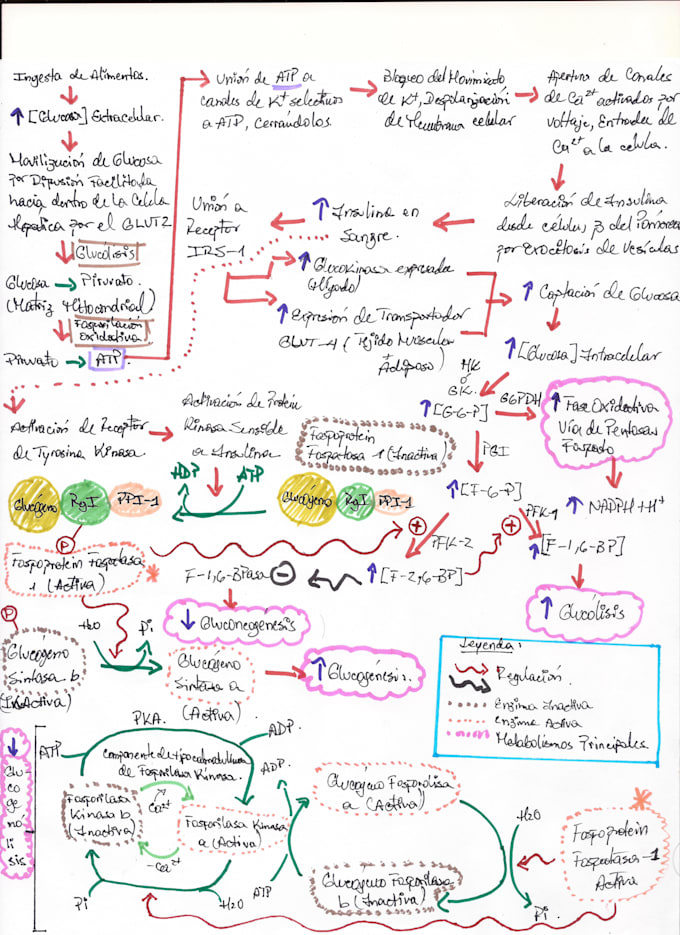 Ingesta de Alimentos.
↑ [Glucosa] Extracelular.
Movilización de Glucosa
por Difusión Facilitada
hacia dentro de la Celula
Hepática por el GLUT2
Glucólisis
Glucosa → Piruvato.
(Matriz Mitocondrial)
Fosforilación
Oxidativa
Piruvato → ATP.
Unión de ATP a
canales de K+ selectivos
a ATP, Cerrándolos.
Bloqueo del Movimiento
de K+, Despolarización
de Membrana celular
Apertura de Canales
de Ca2+ activados por
voltaje, Entrada de
Ca2+ a la célula.
Liberación de Insulina
desde células β del Páncreas
por exocitosis de vesículas
↑ Insulina en
Sangre.
Unión a
Receptor
IRS-1
↑ Glucokinasa expresada
(Hígado)
↑ Expresión de Transportador
GLUT-4 (Tejido Muscular
+
Adiposo)
↑ Captación de Glucosa
↑ [Glucosa] Intracelular
HK
o
GK.
↑ [G-6-P]
G6PDH
↑ Fase Oxidativa
Vía de Pentosas
Fosfato
↑ NADPH + H+
PGI
↑ [F-6-P]
PFK-1
↑ [F-1,6-BP]
↑ Glucólisis
PFK-2
↑ [F-2,6-BP]
+
+
F-1,6-BPasa
−
↓ Gluconeogénesis
Activación de Receptor
de Tyrosina Kinasa
Activación de Protein
Kinasa Sensible
a Insulina
Fosfoprotein
Fosfatasa 1 (Inactiva)
ADP
ATP
Glucógeno
RgI
PPI-1
Glucógeno
RgI
PPI-1
P
Fosfoprotein Fosfatasa
1 (Activa)
*
P
Glucógeno
Sintasa b
(Inactiva)
H2O
Pi
Glucógeno
Sintasa a
(Activa)
↑ Glucogenesis.
Leyenda:
Regulación
Enzima Inactiva
enzima Activa
Metabolismos Principales
↓
Glu-
co
ge
nó
li
sis
PKA.
ATP
ADP.
Componente de tipo calmodulina
de Fosforilasa Kinasa.
Fosforilasa
Kinasa b
(Inactiva)
Ca2+
-Ca2+
Fosforilasa Kinasa
a (Activa)
Pi
H2O
ADP.
ATP
Glucógeno Fosforilasa
a (Activa)
Glucógeno Fosforilasa
b (Inactiva)
H2O
Pi.
*
Fosfoprotein
Fosfatasa-1
Activa